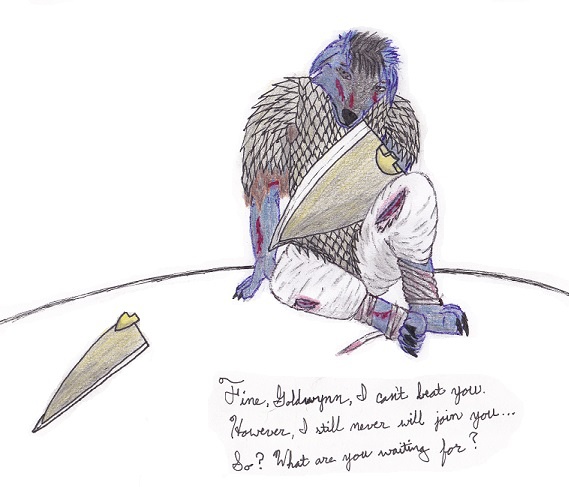 Fine, Goldwynn, I can't beat you.
However, I still never will join you...
So? What are you waiting for?